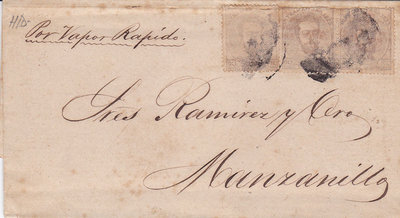 Por Vapor Rapido.
Sres Ramirez y Oro
Manzanillo